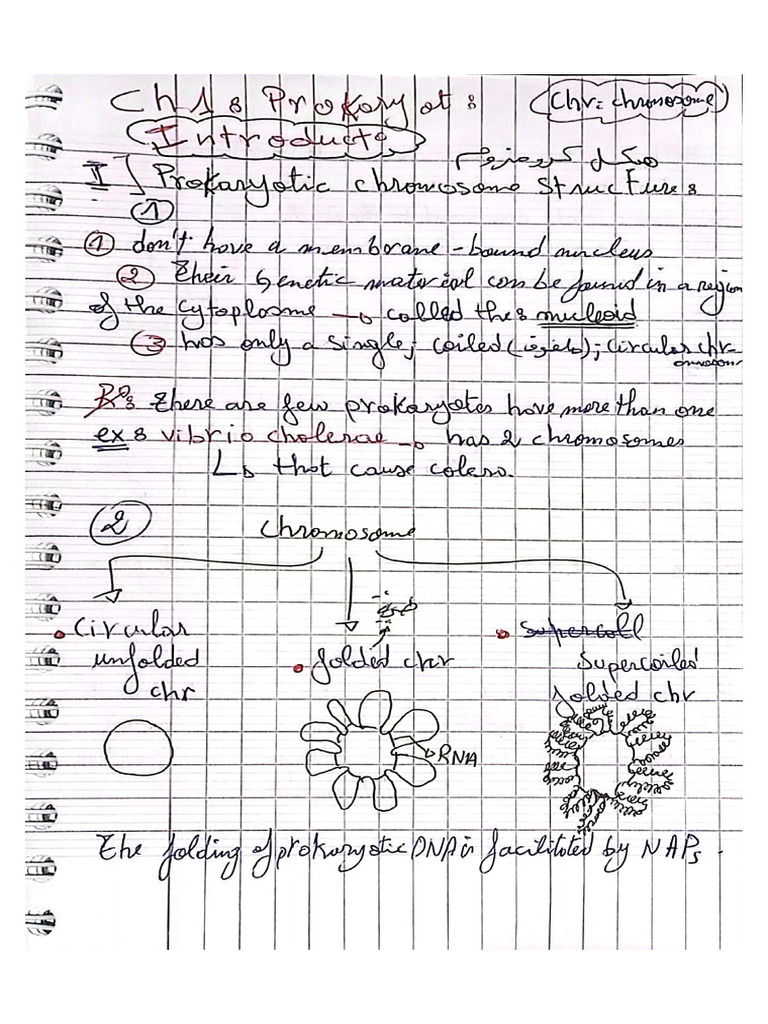 Ch1: Prokaryot:
(Chr: chromosome)
Introducto
هيكل كروموزوم
I) Prokaryotic chromosome structure:
①
① don't have a membrane-bound nucleus
② Their genetic material can be found in a region
of the cytoplasme → called the: nucleoid
③ has only a single; coiled (); circular chr-
omosom
Rq: there are few prokaryotes have more than one
ex: vibrio cholerae → has 2 chromosomes
↳ that cause colera.
② chromosome
• Circular
unfolded
chr
• folded chr
RNA
• supercoll
Supercoiled
folded chr
The folding of prokaryotic DNA is facilitated by NAPs.